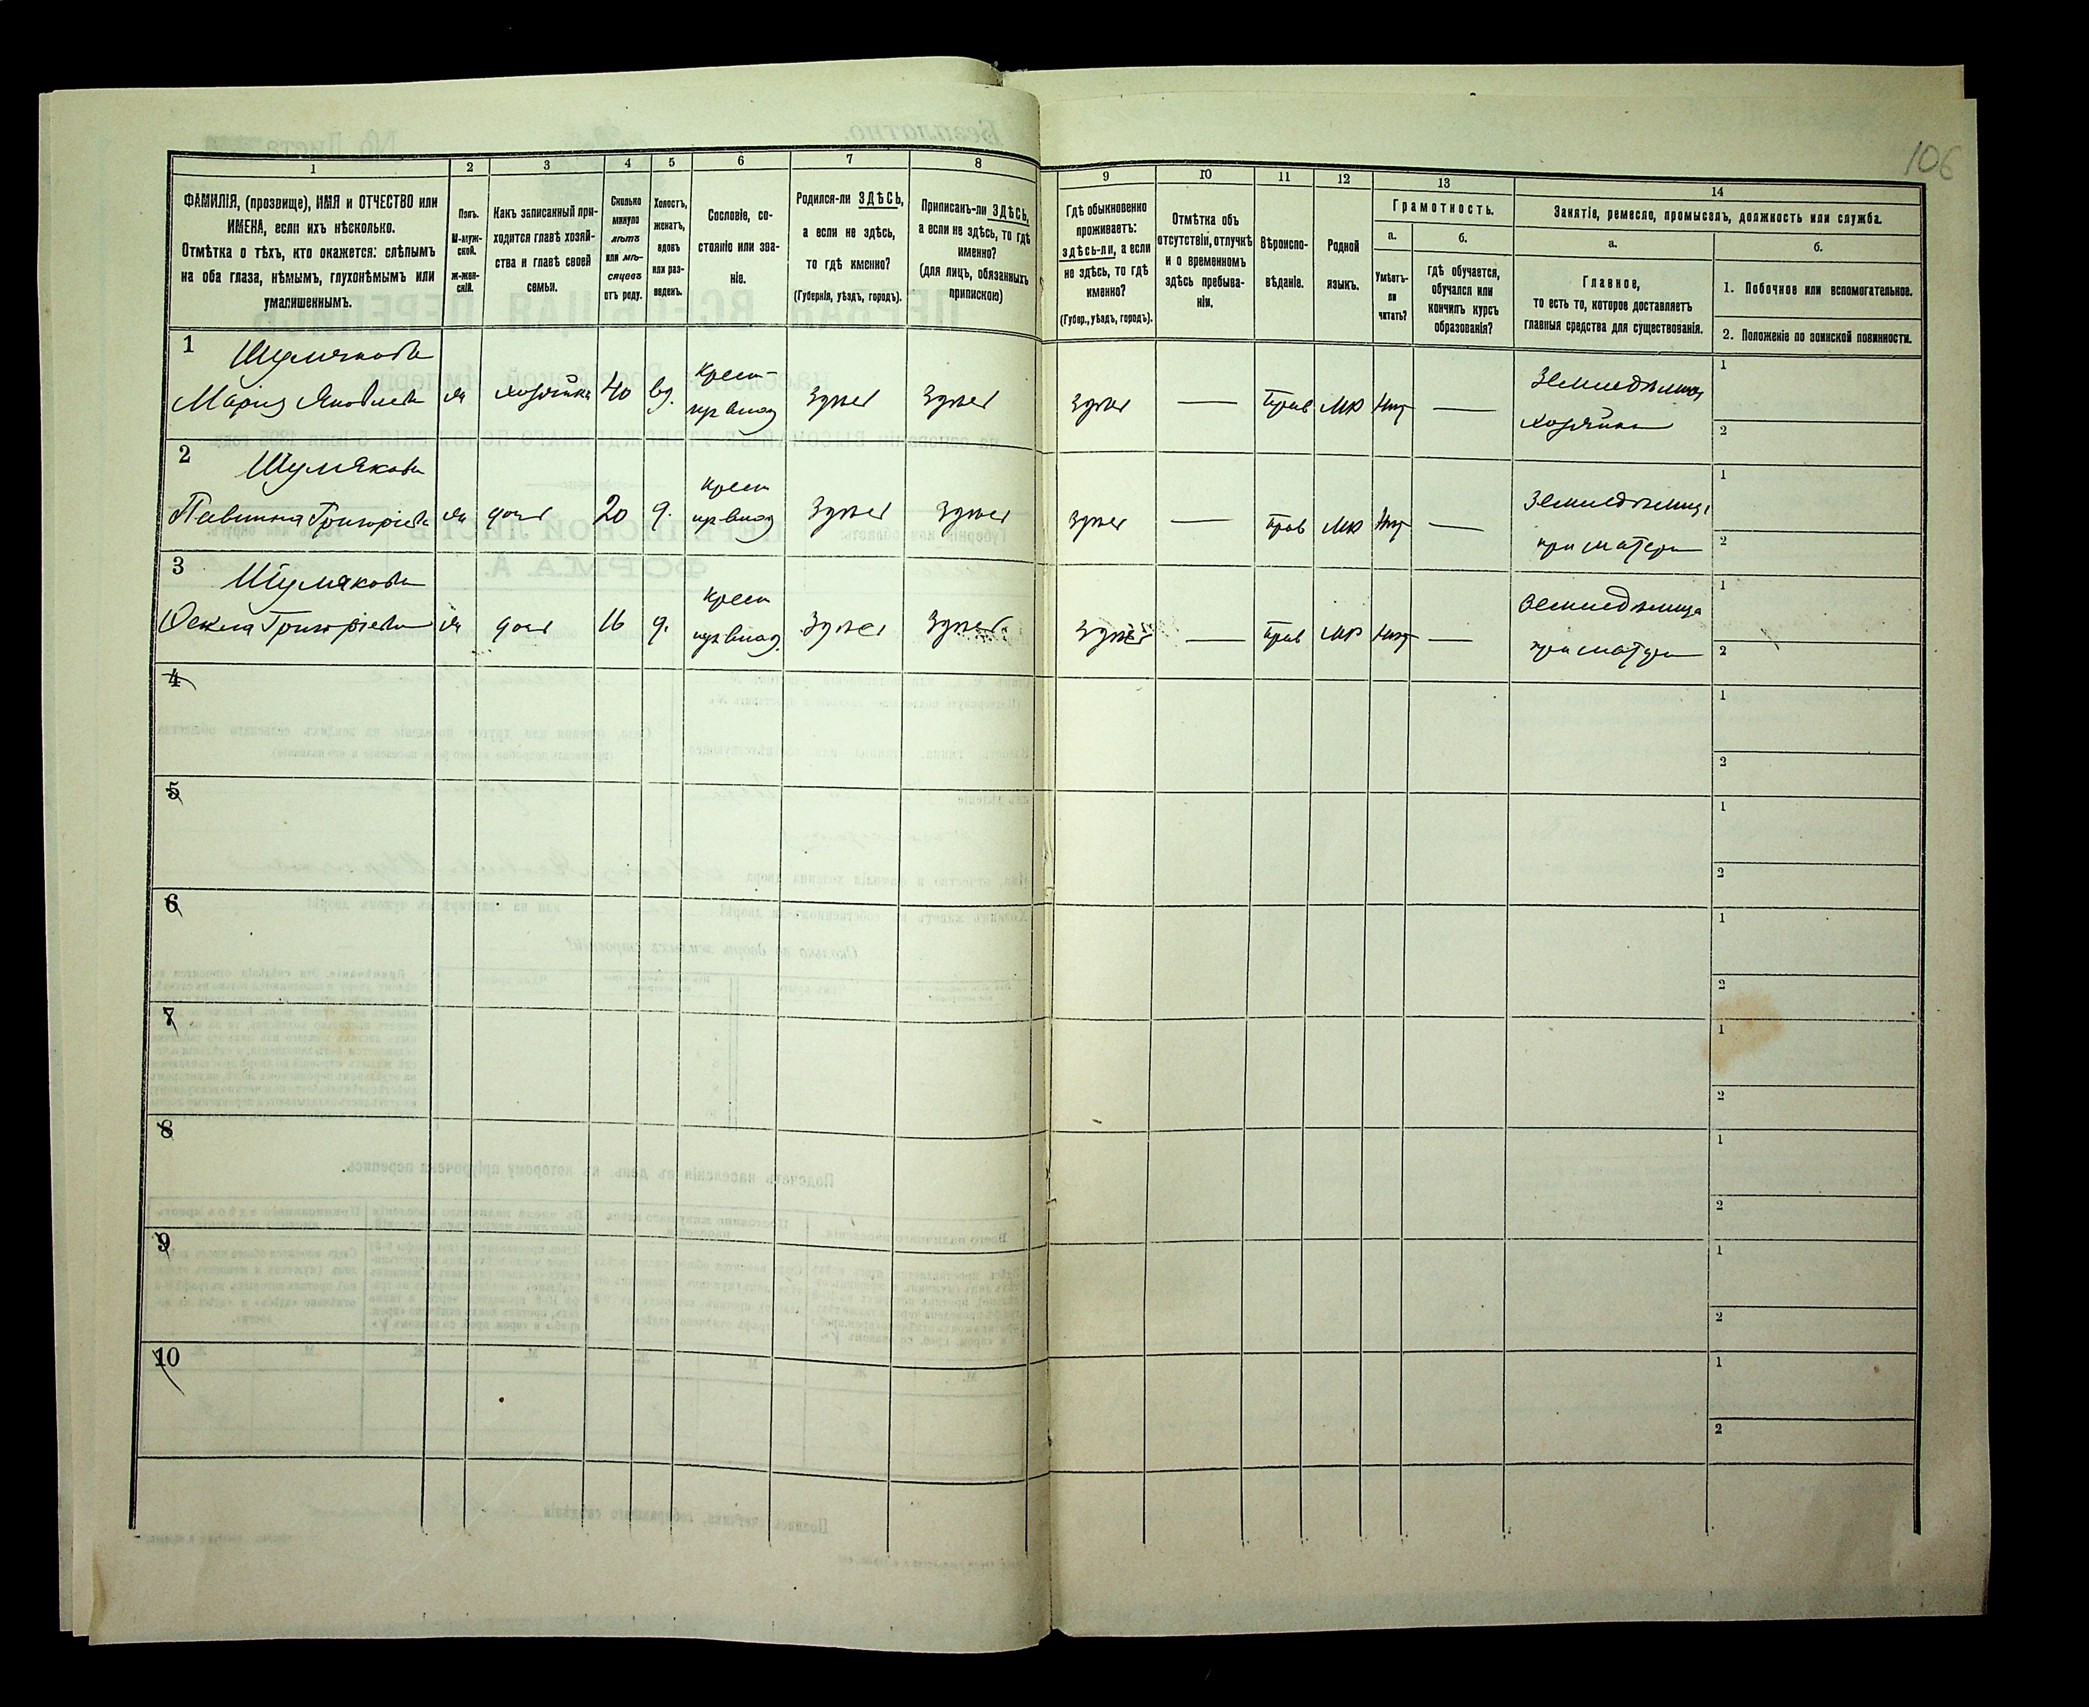 106
1
2
3
4
5
6
7
8
9
10
11
12
13
14
ФАМИЛІЯ, (прозвище), ИМЯ и ОТЧЕСТВО или
ИМЕНА, если ихъ нѣсколько.
Отмѣтка о тѣхъ, кто окажется: слѣпымъ
на оба глаза, нѣмымъ, глухонѣмымъ или
умалишеннымъ.
Полъ.
М-муж-
ской.
Ж-жен-
скій.
Какъ записанный при-
ходится главѣ хозяй-
ства и главѣ своей
семьи.
Сколько
минуло
лѣтъ
или мѣ-
сяцевъ
отъ роду.
Холостъ,
женатъ,
вдовъ
или раз-
веденъ.
Сословіе, со-
стояніе или зва-
ніе.
Родился-ли ЗДѢСЬ,
а если не здѣсь,
то гдѣ именно?
(Губернія, уѣздъ, городъ).
Приписанъ-ли ЗДѢСЬ,
а если не здѣсь, то гдѣ
именно?
(для лицъ, обязанныхъ
припискою)
Гдѣ обыкновенно
проживаетъ:
здѣсь-ли, а если
не здѣсь, то гдѣ
именно?
(Губер., уѣздъ, городъ).
Отмѣтка объ
отсутствіи, отлучкѣ
и о временномъ
здѣсь пребыва-
ніи.
Вѣроиспо-
вѣданіе.
Родной
языкъ.
Грамотность.
а.
Умѣетъ-
ли
читать?
б.
гдѣ обучается,
обучался или
кончилъ курсъ
образованія?
Занятіе, ремесло, промыселъ, должность или служба.
а.
Главное,
то есть то, которое доставляетъ
главныя средства для существованія.
б.
1. Побочное или вспомогательное.
2. Положеніе по воинской повинности.
1
Шумякова
Марія Яковлева
хозяйка
40
вд.
крест-
из влад
здѣсь
здѣсь
здѣсь
—
Прав
мр
нѣт
—
Земледѣлица
хозяйка
1
2
2
Шумякова
Павлина Григоріева
дочь
20
д.
крест
из влад
здѣсь
здѣсь
здѣсь
—
прав
мр
нѣт
—
Земледѣлица
при матери
1
2
3
Шумякова
Фекла Григоріева
дочь
16
д.
крест
из влад.
здѣсь
здѣсь
здѣсь
—
прав
мр
нѣт
—
Земледѣлица
при матери
1
2
4
1
2
5
1
2
6
1
2
7
1
2
8
1
2
9
1
2
10
1
2